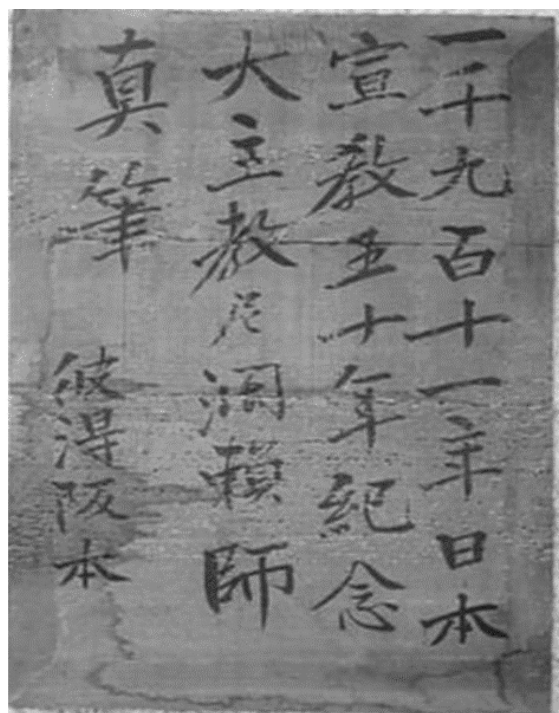 一千九百十一年日本
宣教五十年紀念
大主教尼濶頼師
真筆
彼得阪本